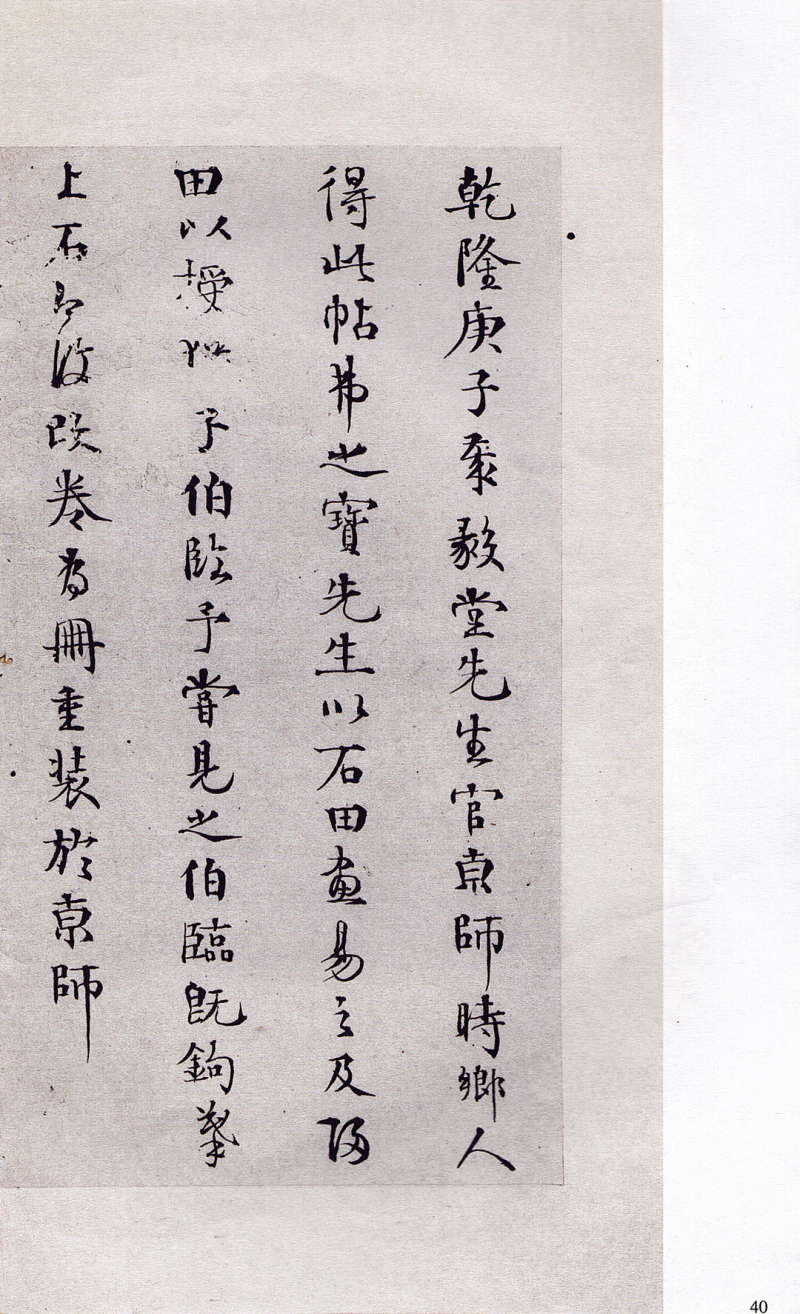 乾隆庚子毅堂先生官京師時鄉人
得此帖弗之寶先生以石田畫易之及歸
田以授子伯臨予嘗見之伯臨既鉤摹
上石即復改卷為冊重裝於京師
40